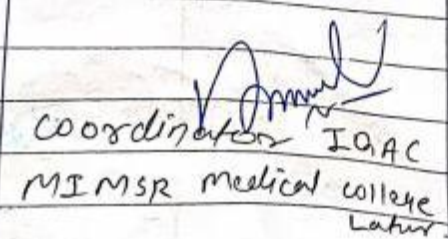 Coordinator IQAC
MIMSR Medical college
Latur